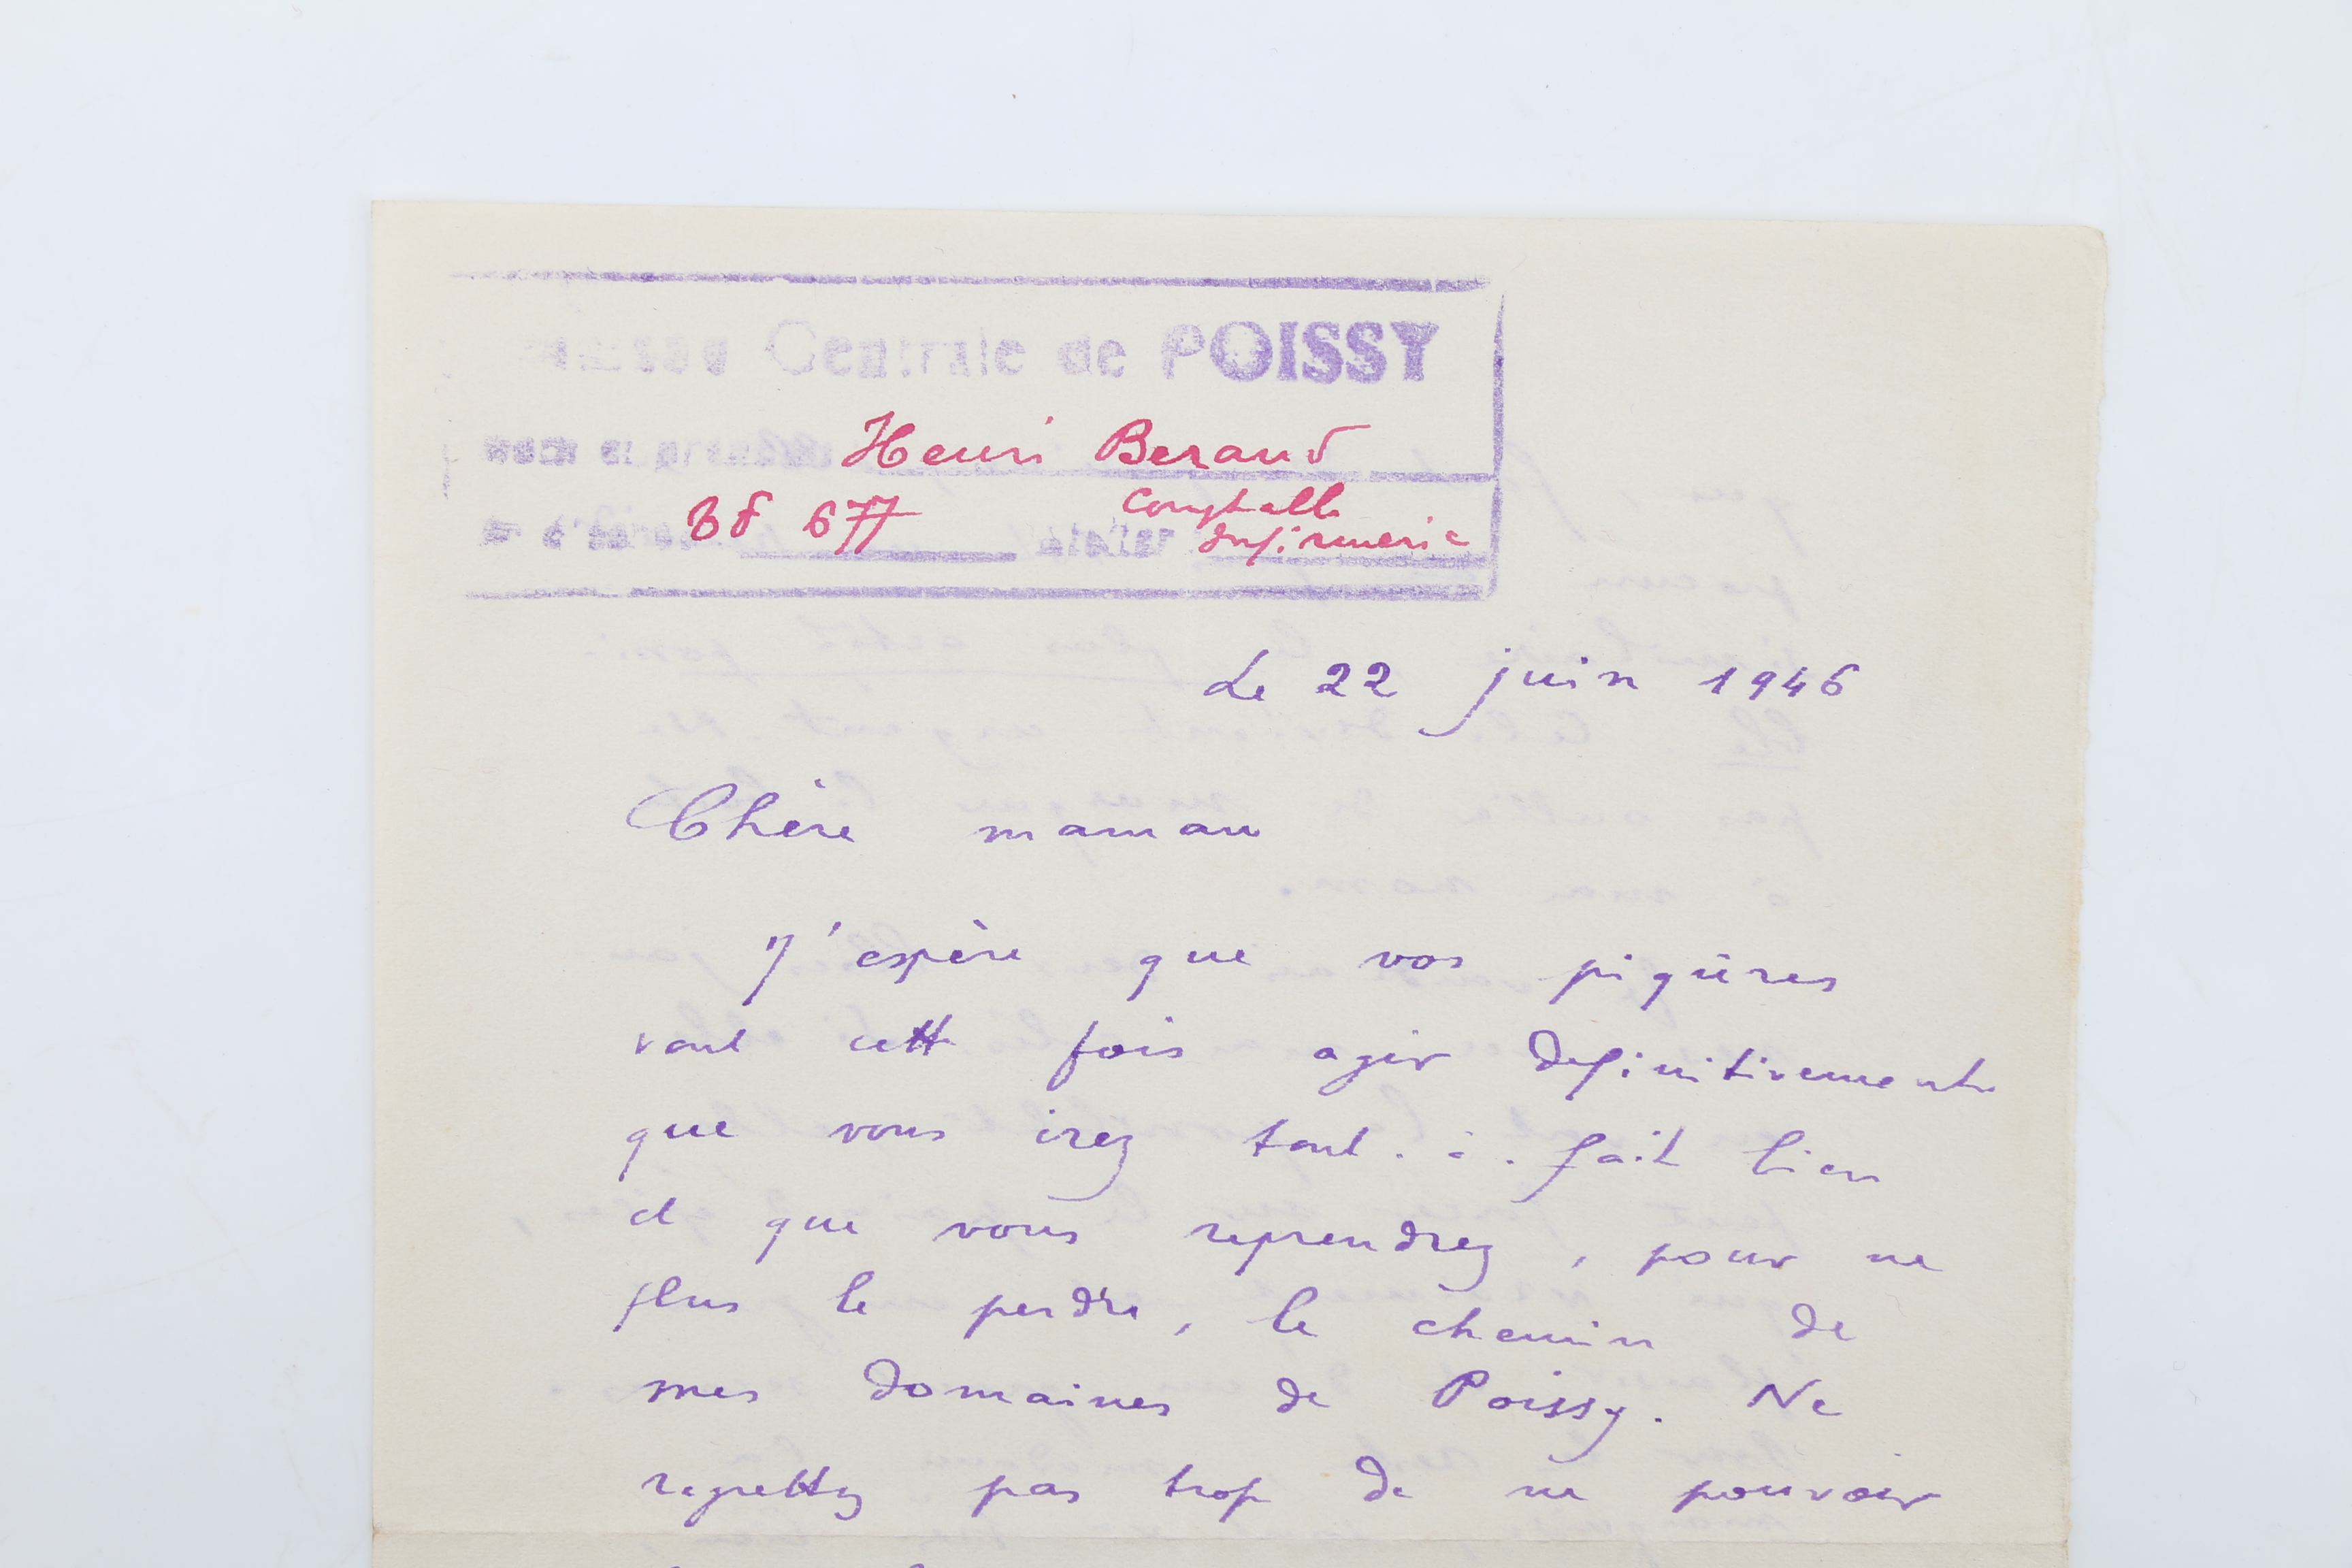 Maison Centrale de POISSY
Nom et prénoms Henri Beraud
N° d'écrou 8f 677 Atelier Comptable
Infirmerie
Le 22 juin 1946
Chère maman
J'espère que vos piqûres
vont cette fois agir definitivement
que vous irez tout-à-fait bien
et que vous reprendrez, pour ne
plus le perdre, le chemin de
mes domaines de Poissy. Ne
regrettez pas trop de ne pouvoir